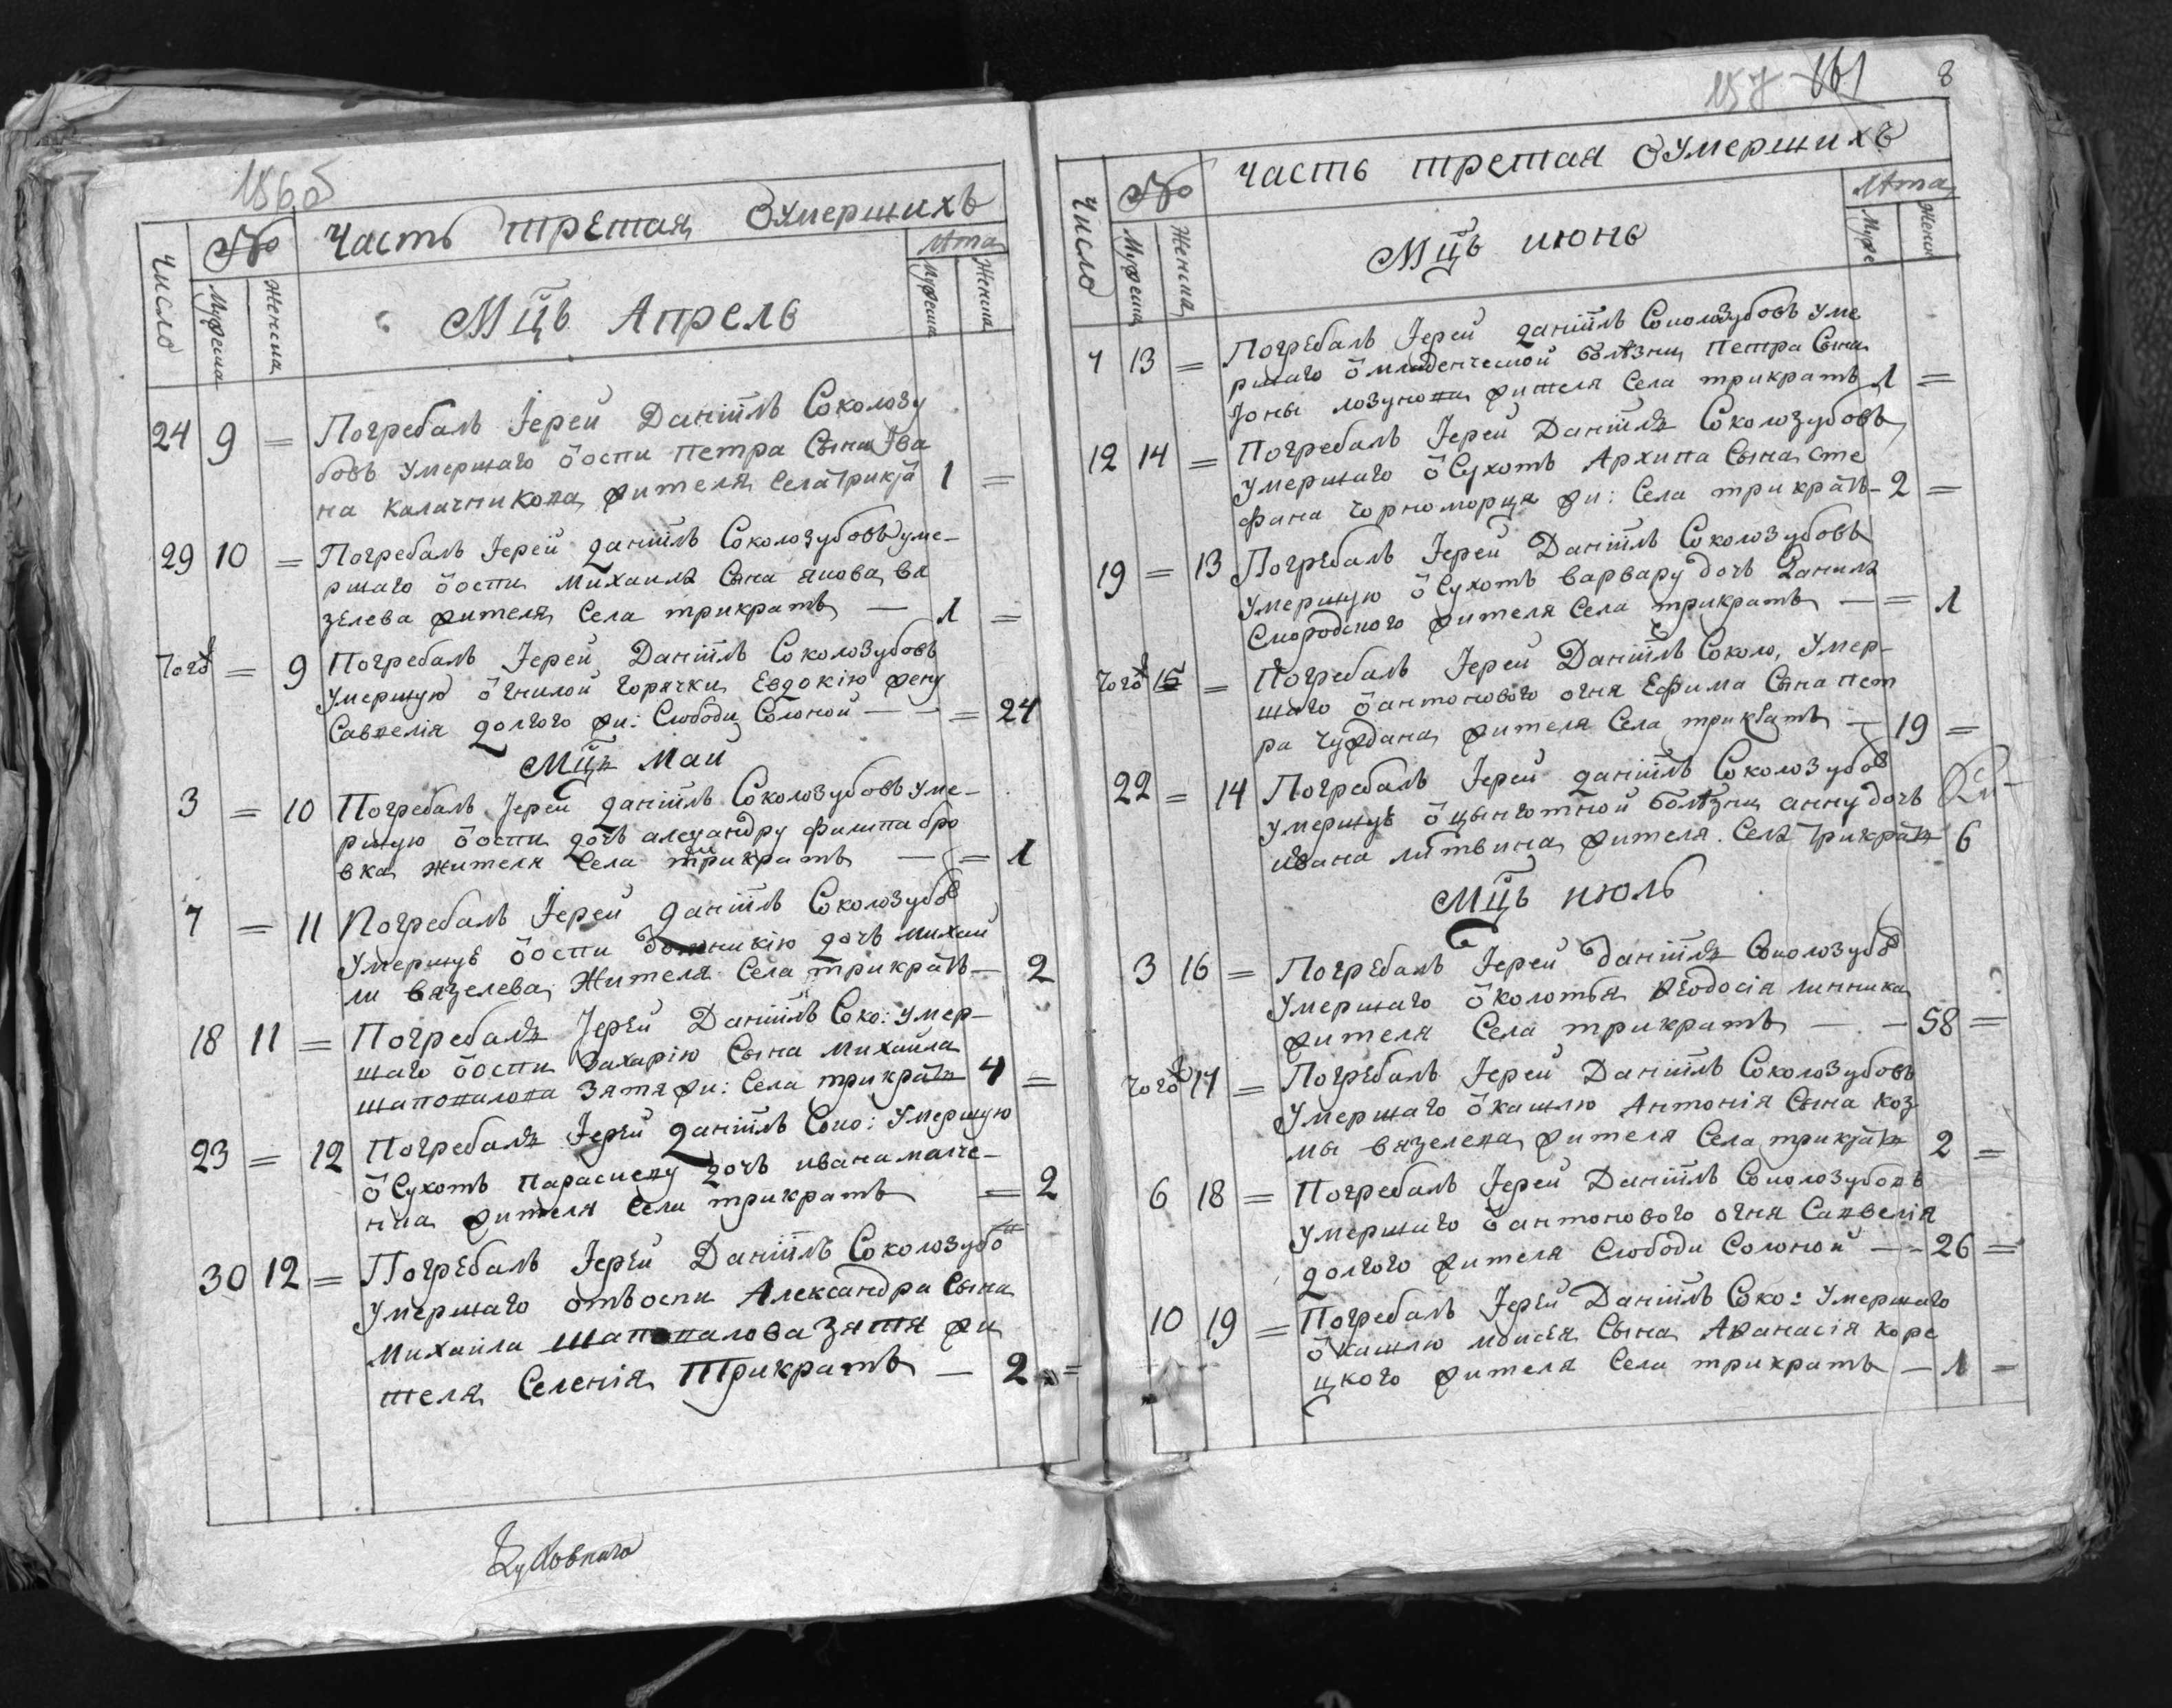 156 об
Число № Часть третая Оумершихъ Лѣта
Мужеска Женска Мцъ Апрель Мужеска Женска
24 9 = Погребалъ Іерей Даніилъ Соколозу
бовъ умершаго ѿ оспи петра Сына Ива
на калачникова жителя Села Трикра 1 =
29 10 = Погребалъ Іерей Даніилъ Соколозубовъ уме-
ршаго ѿ оспи Михаила Сына якова, вя
зелева жителя Села трикратъ — 1 =
Того ж = 9 Погребалъ Іерей Даніилъ Соколозубовъ
умершую ѿ гнилой горячки Евдокію жену
Савелія долгого жи: Слободи Солоной — = 24
Мцъ Маи
3 = 10 Погребалъ Іерей Даніилъ Соколозубовъ уме-
ршую ѿ оспи дочь александру филипа бро
вка жителя Села трикратъ — = 1
7 = 11 Погребалъ Іерей Даніилъ Соколозубов
умершуе ѿ оспи дочь михаи
ли вязелева Жителя Села трикратъ — 2
18 11 = Погребалъ Іерей Даніилъ Соко: умер-
шаго ѿ оспи Захарію Сына Михаила
шаповалова зятя жи: Села трикратъ 4 =
23 = 12 Погребалъ Іерей Даніилъ Соко: умершую
ѿ Сухотъ Параскеву дочь ивана малче-
нка жителя Села трикратъ = 2
30 12 = Погребалъ Іерей Даніилъ Соколозубо
умершаго отъ оспи Александра Сына
Михаила шаповалова зятя жи
теля Селенія Трикратъ — 2 =
157 161 8
Число № часть третая Оумершихъ Лѣта
Мужеска Женска Мцъ июнь Муже Женск
7 13 = Погребалъ Іерей Даніилъ Соколозубовъ уме
ршаго ѿ младенческой болѣзни Петра Сына
Іоны лозунова жителя Села трикратъ 1 =
12 14 = Погребалъ Іерей Даніилъ Соколозубовъ
умершаго ѿ Сухотъ Архипа Сына Сте
фана Чорноморца жи: Села трикратъ - 2 =
19 = 13 Погребалъ Іерей Даніилъ Соколозубовъ
умершую ѿ Сухотъ варвару дочь Данила
Смородского жителя Села трикратъ — = 1
Того ж 15 = Погребалъ Іерей Даніилъ Соколо, умер-
шаго ѿ антонового огня Ефима Сына пет
ра чуждана жителя Села трикратъ — 19 =
22 = 14 Погребалъ Іерей Даніилъ Соколозубов
умершуе ѿ цынготной болѣзни анну дочь
ивана литвина жителя Села Трикратъ 6
Мцъ июль
3 16 = Погребалъ Іерей Даніилъ Соколозубов
умершаго ѿ колотья Ѳеодосія линника
жителя Села трикратъ — — 58 =
Того ж 17 = Погребалъ Іерей Даніилъ Соколозубовъ
умершаго ѿ кашлю Антонія Сына коз
мы вязелева жителя Села трикратъ 2 =
6 18 = Погребалъ Іерей Даніилъ Соколозубовъ
умершаго ѿ антонового огня Савелія
долгого жителя Слободи Солоной — - 26 =
10 19 = Погребалъ Іерей Даніилъ Соко: умершаго
ѿ кашлю моисея Сына Аѳанасія коре
цкого жителя Села трикратъ — 1 =